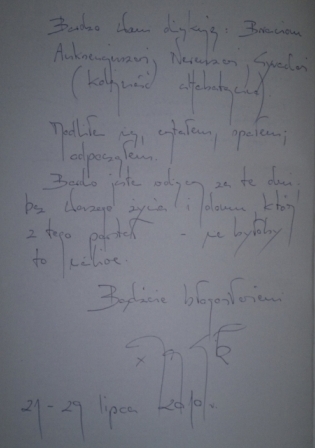 Bardzo Wam dziękuję: Braciom
Antoninowi, Nereuszowi, Gwidonowi
(kolejność alfabetyczna)
Modliłem się, czytałem, spałem,
odpocząłem.
Bardzo jestem wdzięczny za te dni.
bez Waszego życia i domu, który
z tego powstał - nie byłoby
to możliwe.
Bądźcie błogosławieni
x
21 - 29 lipca 2010 r.